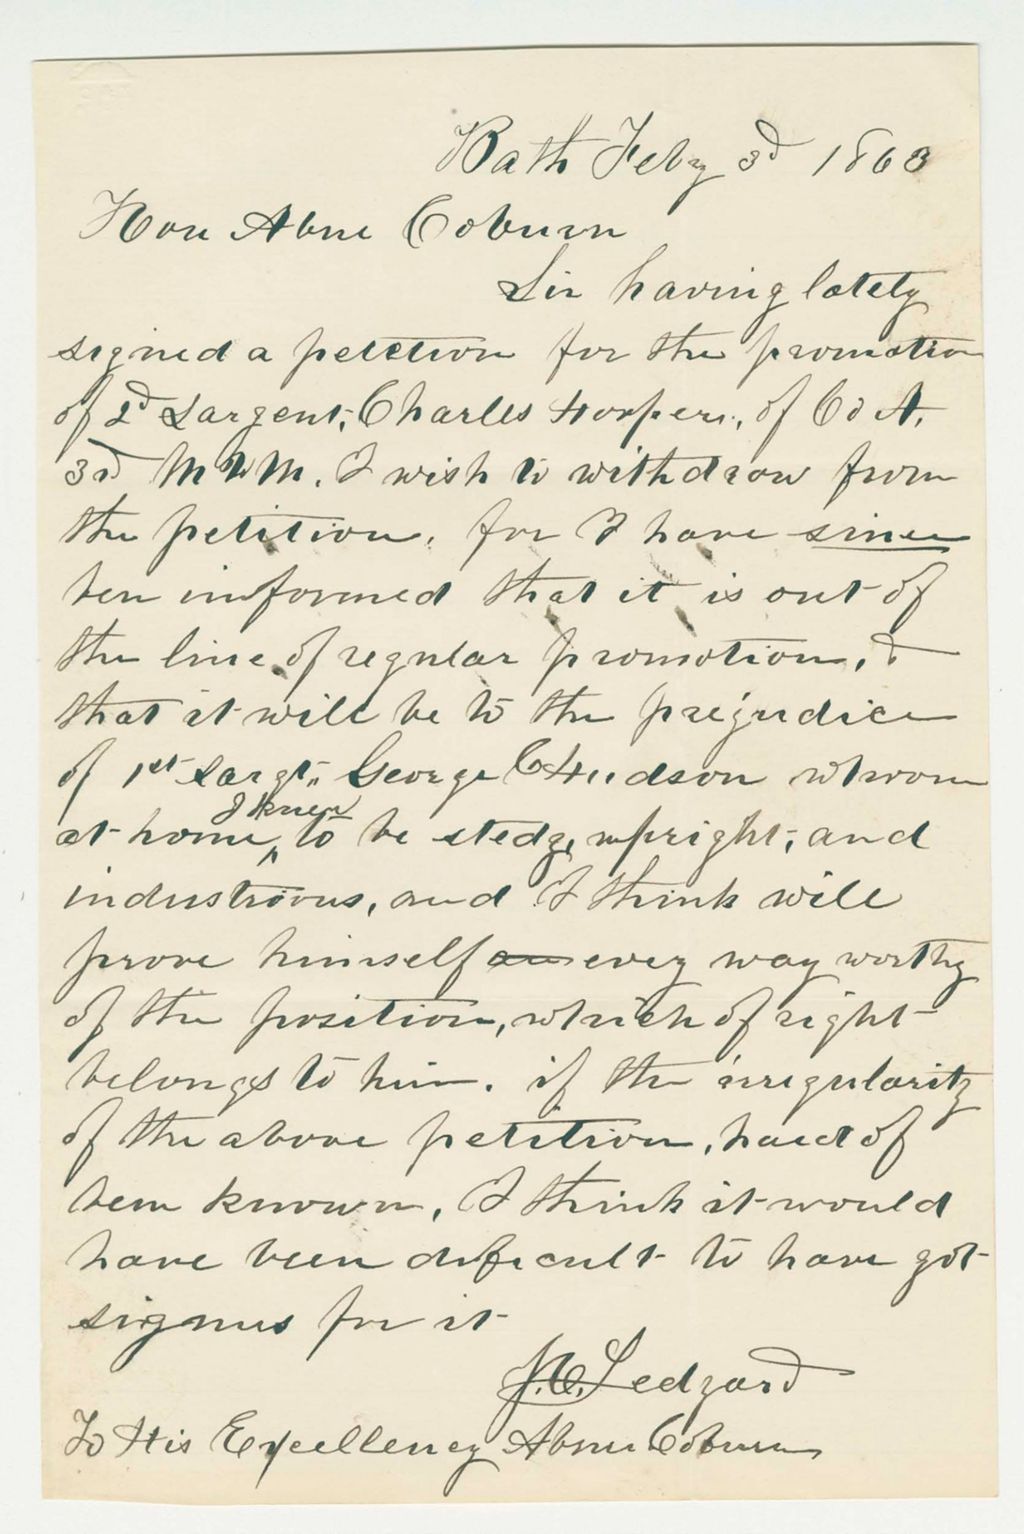 Bath Feby 3d 1863
Hon Abne Coburn
Sir having lately
signed a petetion for the promotion
of 2d Sargent, Charles Hooper, of Co A,
3rd M V M. I wish to withdraw from
the petition, for I have since
ben informed that it is out of
the line of regular promotion, &
that it will be to the prejudice
of 1st Sargt, George C Hudson whom
at home I knew to be stedy, upright, and
industrious, and I think will
prove himself every way worthy
of the position, which of right
belongs to him. if the irregularity
of the above petition, had of
ben known, I think it would
have been dificult to have got
signus for it
J. C. Ledyard
To His Excellency Abner Coburn